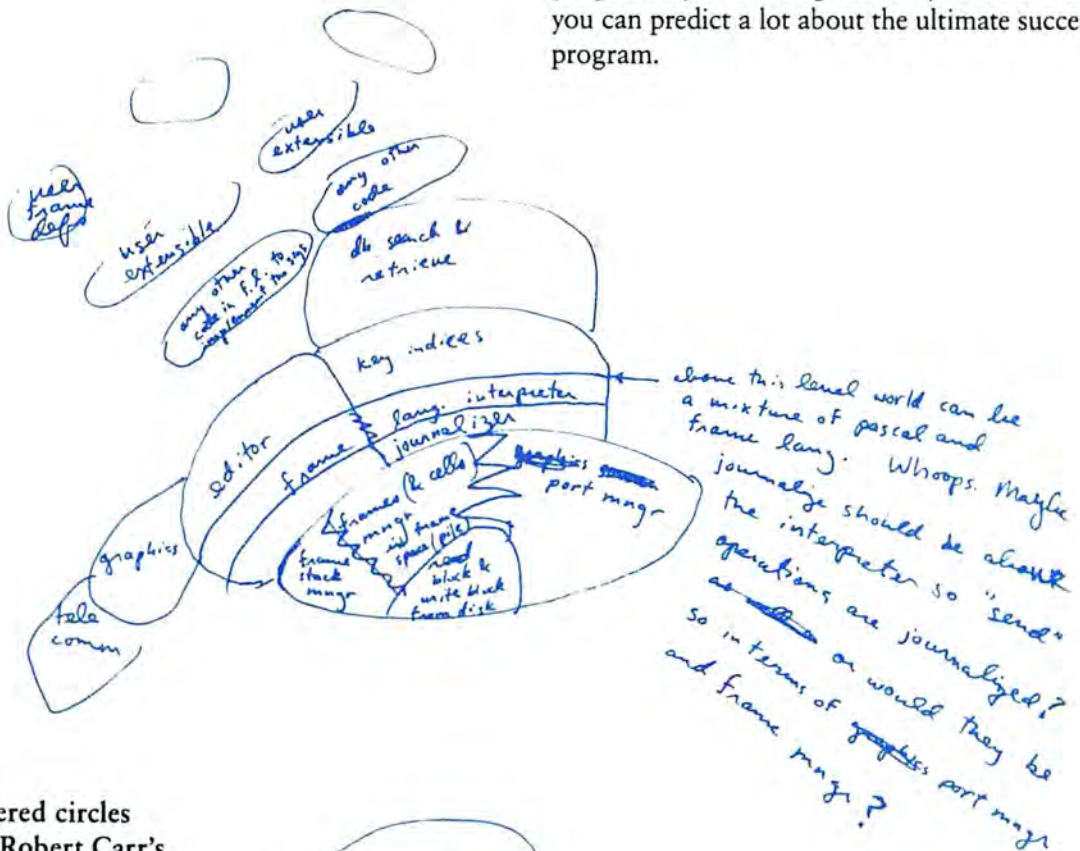 you can predict a lot about the ultimate succe
program.
user
extensible
any other
code
user
frame
defs
user
extensible
any other
code in F.L. to
implement the sys
db search &
retrieve
key indices
editor
frame lang. interpreter
journalizer
frames (& cells)
mngr
in frame
space/pile
port mngr
frame
stack
mngr
read
block &
write block
from disk
graphics
tele
comm
above this level world can be
a mixture of pascal and
frame lang. Whoops. Maybe
journalize should be above
the interpreter so "send"
operations are journalized?
or would they be
so in terms of port mngr
and frame mngr?
ered circles
Robert Carr's